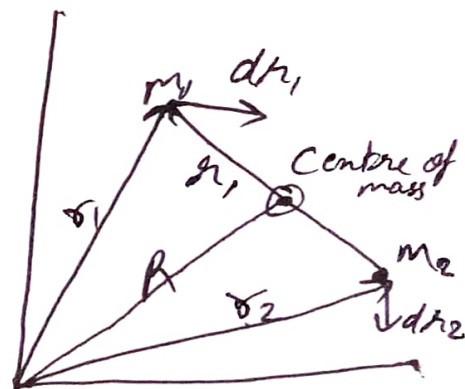 m1
dr1
r1
Centre of
mass
r1
R
m2
r2
dr2